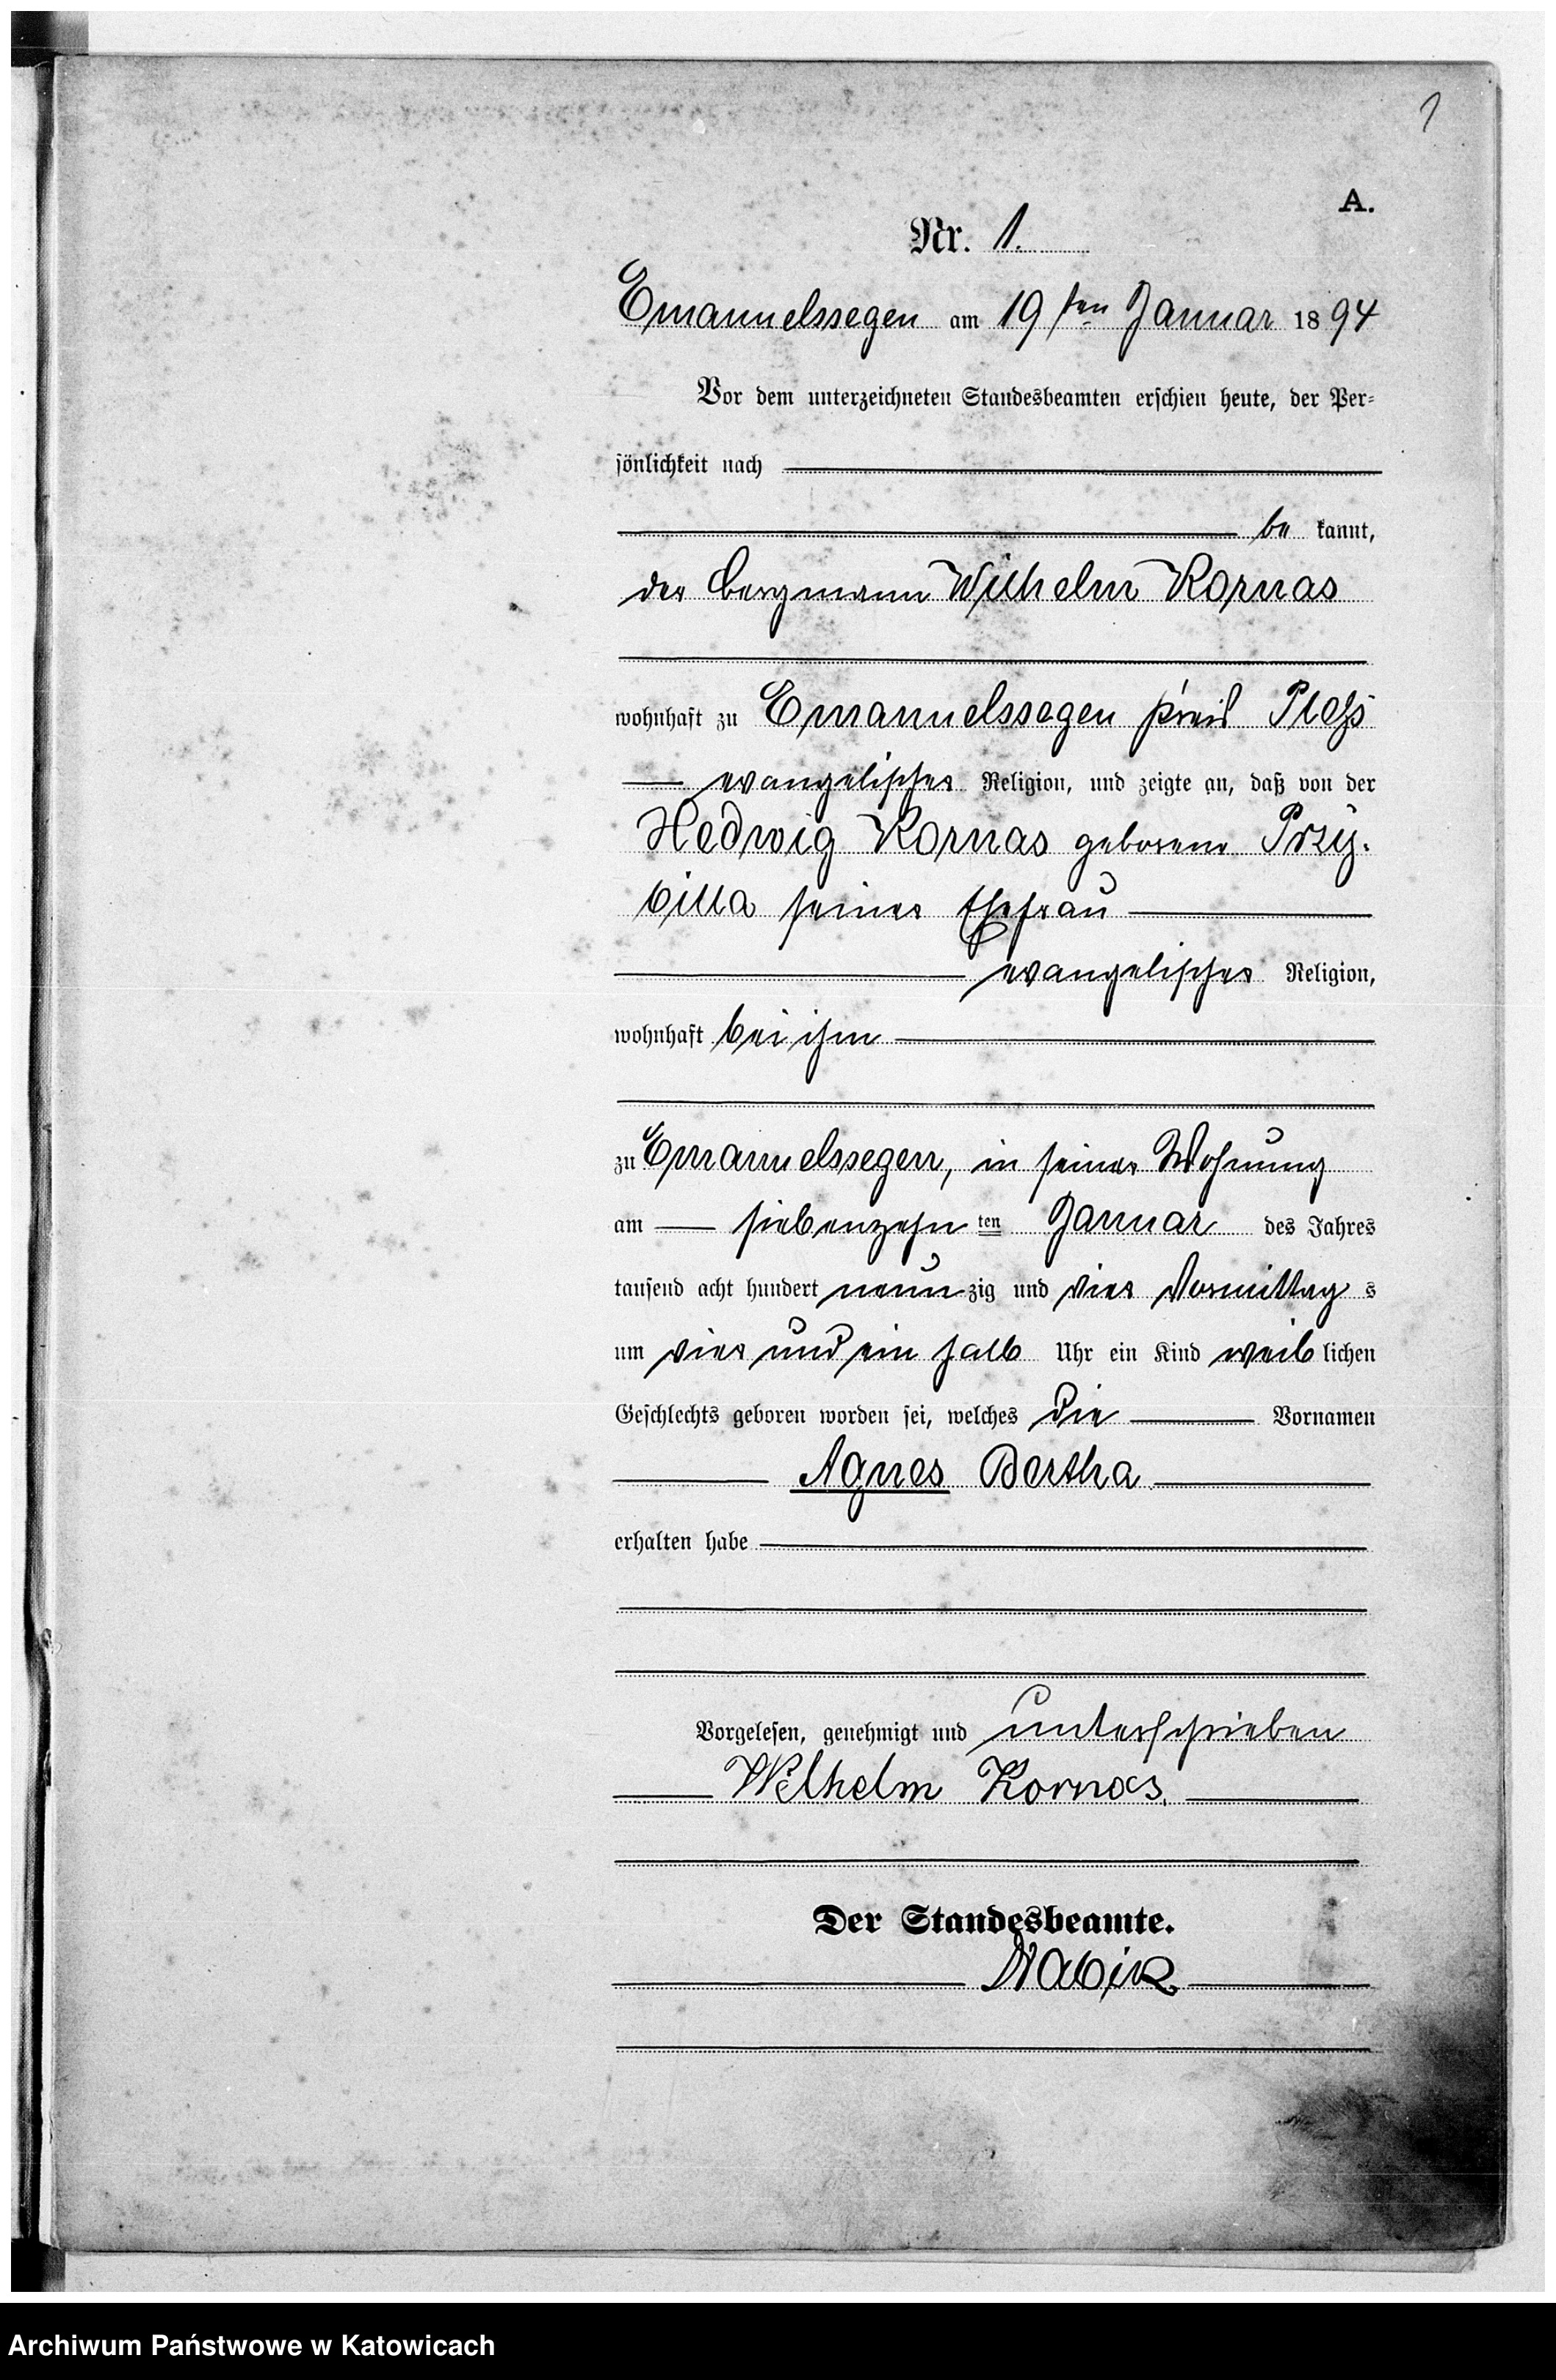 1
A.
Nr. 1.
Emanuelssegen am 19ten Januar 1894
Vor dem unterzeichneten Standesbeamten erschien heute, der Per=
sönlichkeit nach
be kannt,
der Bergmann Wilhelm Kornas
wohnhaft zu Emanuelssegen Kreis Pleß
evangelischer Religion, und zeigte an, daß von der
Hedwig Kornas geborene Przy-
billa seiner Ehefrau
evangelischer Religion,
wohnhaft bei ihm
zu Emanuelssegen, in seiner Wohnung
am siebenzehn ten Januar des Jahres
tausend acht hundert neun zig und vier Vormittag s
um vier und ein halb Uhr ein Kind weib lichen
Geschlechts geboren worden sei, welches die Vornamen
Agnes Bertha
erhalten habe
Vorgelesen, genehmigt und unterschrieben
Wilhelm Kornas.
Der Standesbeamte.
Nabik
Archiwum Państwowe w Katowicach